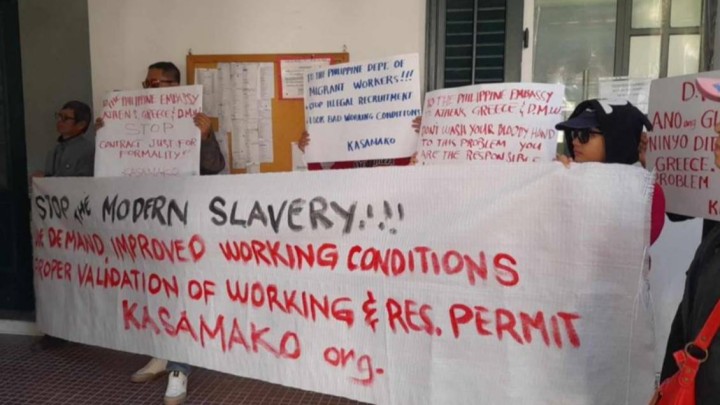 TO PHILIPPINE EMBASSY
ATHENS GREECE & D.M.W
STOP
CONTRACT JUST FOR
FORMALITY!
TO PHILIPPINE DEPT. OF
MIGRANT WORKERS!!!
STOP ILLEGAL RECRUITMENT
BAD WORKING
KASAMAKO
PHILIPPINE EMBASSY
GREECE & D.M.W
WASH YOUR BLOODY HAND
TO THIS PROBLEM YOU
ARE THE RESPONSIBLE
D.
ANO ang GU
NINYO DIT
GREECE.
PROBLEM
K
STOP THE MODERN SLAVERY!!!
WE DEMAND, IMPROVED WORKING CONDITIONS
PROPER VALIDATION OF WORKING & RES. PERMIT
KASAMAKO org.